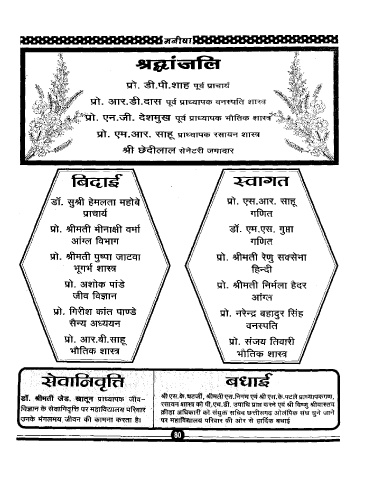 मनीषा
श्रद्धांजलि
प्रो. डी.पी.शाह पूर्व प्राचार्य
प्रो. आर.डी.दास पूर्व प्राध्यापक वनस्पति शास्त्र
प्रो. एन.जी. देशमुख पूर्व प्राध्यापक भौतिक शास्त्र
प्रो. एम.आर. साहू प्राध्यापक रसायन शास्त्र
श्री छेदीलाल सेनेटरी जमादार
बिदाई
डॉ. सुश्री हेमलता महोबे
प्राचार्य
प्रो. श्रीमती मीनाक्षी वर्मा
आंग्ल विभाग
प्रो. श्रीमती पुष्पा जाटवा
भूगर्भ शास्त्र
प्रो. अशोक पांडे
जीव विज्ञान
प्रो. गिरीश कांत पाण्डे
सैन्य अध्ययन
प्रो. आर.बी.साहू
भौतिक शास्त्र
स्वागत
प्रो. एस.आर. साहू
गणित
डॉ. एम.एस. गुप्ता
गणित
प्रो. श्रीमती रेणु सक्सेना
हिन्दी
प्रो. श्रीमती निर्मला हैदर
आंग्ल
प्रो. नरेन्द्र बहादुर सिंह
वनस्पति
प्रो. संजय तिवारी
भौतिक शास्त्र
सेवानिवृत्ति
डॉ. श्रीमती जेड. खातून प्राध्यापक जीव-
विज्ञान के सेवानिवृत्ति पर महाविद्यालय परिवार
उनके मंगलमय जीवन की कामना करता है।
बधाई
श्री एस.के. चटर्जी, श्रीमती एस.निगम एवं श्री एस.के.पटले प्राध्यापकगण,
रसायन शास्त्र को पी.एच.डी. उपाधि प्राप्त करने एवं श्री विष्णु श्रीवास्तव
क्रीड़ा अधिकारी को संयुक्त सचिव छत्तीसगढ़ ओलंपिक संघ चुने जाने
पर महाविद्यालय परिवार की ओर से हार्दिक बधाई